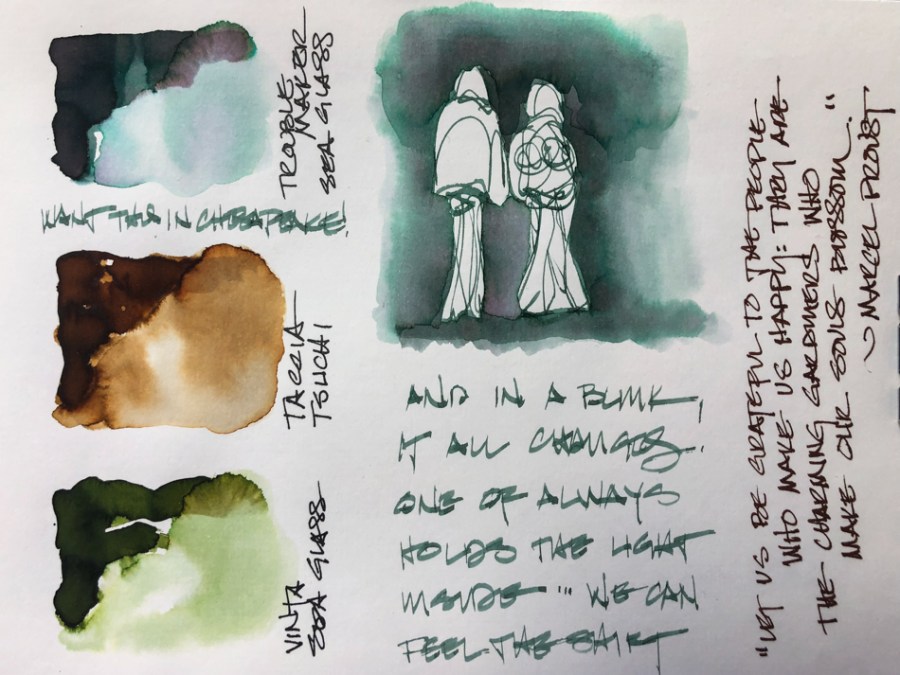 TROUBLE
MAKER
SEA GLASS
WANT THIS IN CHEAPEAKE!
TACCIA
TSUCHI
VINTA
SEA GLASS
AND IN A BLINK,
IT ALL CHANGES.
ONE OF ALWAYS
HOLDS THE LIGHT
INSIDE ... WE CAN
FEEL THE SHIFT
"LET US BE GRATEFUL TO THE PEOPLE
WHO MAKE US HAPPY: THEY ARE
THE CHARMING GARDNERS WHO
MAKE OUR SOULS BLOSSOM."
~ MARCEL PROUST